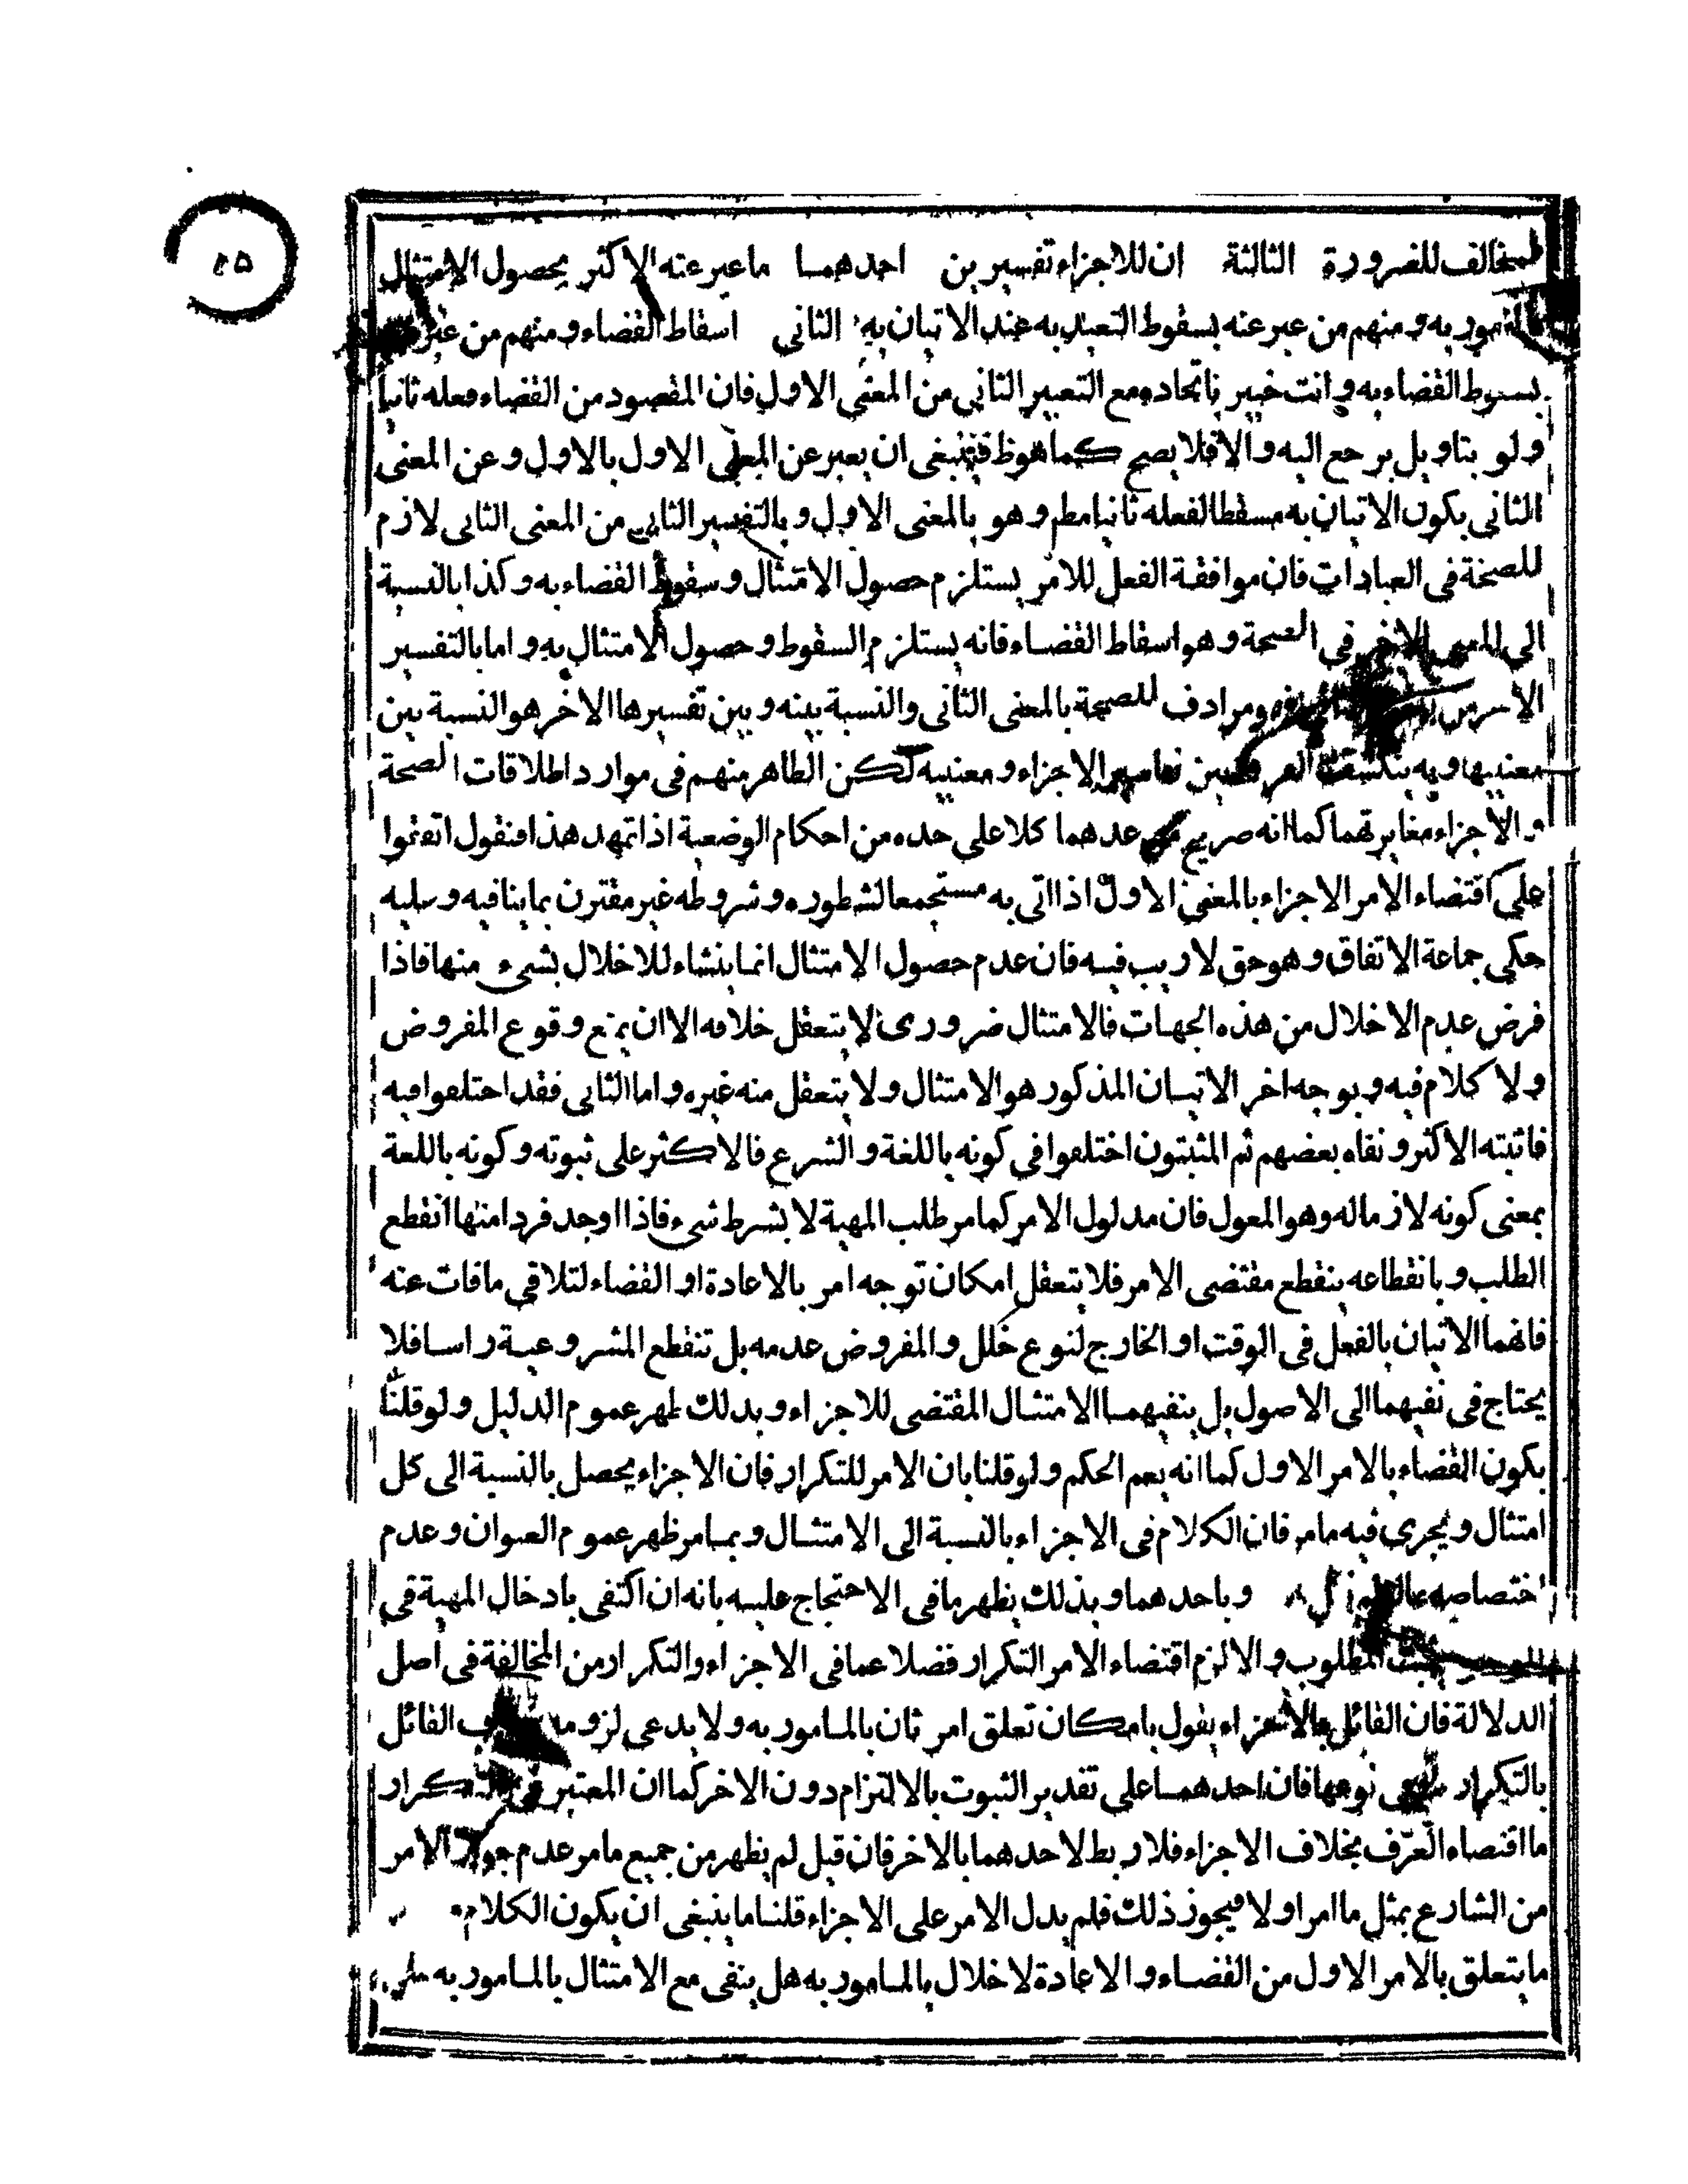 ٤٥
مخالف للضرورة الثالثة ان للاجزاء تفسيرين احدهما ما عبر عنه الاكثر بحصول الامتثال
بالمامور به و منهم من عبر عنه بسقوط التعبد به عند الاتيان به الثانى اسقاط القضاء و منهم من عبر
بسقوط القضاء به و انت خبير باتحاده مع التعبير الثانى من المعنى الاول فان المقصود من القضاء فعله ثانيا
و لو بتاويل يرجع اليه و الا فلا يصح كما هو ظ فينبغى ان يعبر عن المعنى الاول بالاول و عن المعنى
الثانى بكون الاتيان به مسقطا لفعله ثانيا مطم و هو بالمعنى الاول و بالتفسير الثانى من المعنى الثانى لازم
للصحة فى العبادات فان موافقة الفعل للامر يستلزم حصول الامتثال و سقوط القضاء به و كذا بالنسبة
الى الاخر فى الصحة و هو اسقاط القضاء فانه يستلزم السقوط و حصول الامتثال به و اما بالتفسير
الاخر من و مرادف للصحة بالمعنى الثانى و النسبة بينه و بين تفسيرها الاخر هو النسبة بين
معنييها و به ينكشف الفرق بين تفاسير الاجزاء و معنييه لكن الظاهر منهم فى موارد اطلاقات الصحة
و الاجزاء مغايرتهما كما انه صريح من عدهما كلا على حده من احكام الوضعية اذا تمهد هذا فنقول اتفقوا
على اقتضاء الامر الاجزاء بالمعنى الاول اذا اتى به مستجمعا لشطوره و شروطه غير مقترن بما ينافيه و عليه
حكى جماعة الاتفاق و هو حق لا ريب فيه فان عدم حصول الامتثال انما ينشاء للاخلال بشىء منها فاذا
فرض عدم الاخلال من هذه الجهات فالامتثال ضرورى لا يتعقل خلافه الا ان يمنع وقوع المفروض
و لا كلام فيه و بوجه اخر الاتيان المذكور هو الامتثال و لا يتعقل منه غيره و اما الثانى فقد اختلفوا فيه
فاثبته الاكثر و نفاه بعضهم ثم المثبتون اختلفوا فى كونه باللغة و الشرع فالاكثر على ثبوته و كونه باللغة
بمعنى كونه لازما له و هو المعول فان مدلول الامر كما مر طلب المهية لا بشرط شىء فاذا اوجد فردا منها انقطع
الطلب و بانقطاعه ينقطع مقتضى الامر فلا يتعقل امكان توجه امر بالاعادة او القضاء لتلافى ما فات عنه
فانهما الاتيان بالفعل فى الوقت او الخارج لنوع خلل و المفروض عدمه بل تنقطع المشروعية راسا فلا
يحتاج فى نفيهما الى الاصول بل ينفيهما الامتثال المقتضى للاجزاء و بذلك ظهر عموم الدليل و لو قلنا
بكون القضاء بالامر الاول كما انه يعم الحكم و لو قلنا بان الامر للتكرار فان الاجزاء يحصل بالنسبة الى كل
امتثال و يجرى فيه ما مر فان الكلام فى الاجزاء بالنسبة الى الامتثال و بما مر ظهر عموم العنوان و عدم
اختصاصه و باحدهما و بذلك يظهر ما فى الاحتجاج عليه بانه ان اكتفى بادخال المهية فى
المطلوب و الا لزم اقتضاء الامر التكرار فضلا عما فى الاجزاء و التكرار من المخالفة فى اصل
الدلالة فان القائل بالاجزاء يقول بامكان تعلق امر ثان بالمامور به و لا يدعى لزومه القائل
بالتكرار نوعها فان احدهما على تقدير الثبوت بالالتزام دون الاخر كما ان المعتبر فى التكرار
ما اقتضاه العرف بخلاف الاجزاء فلا ربط لاحدهما بالاخر فان قيل لم يظهر من جميع ما مر عدم جواز الامر
من الشارع بمثل ما امر اولا فيجوز ذلك فلم يدل الامر على الاجزاء قلنا ما ينبغى ان يكون الكلام
ما يتعلق بالامر الاول من القضاء و الاعادة لا خلال بالمامور به هل ينفى مع الامتثال بالمامور به